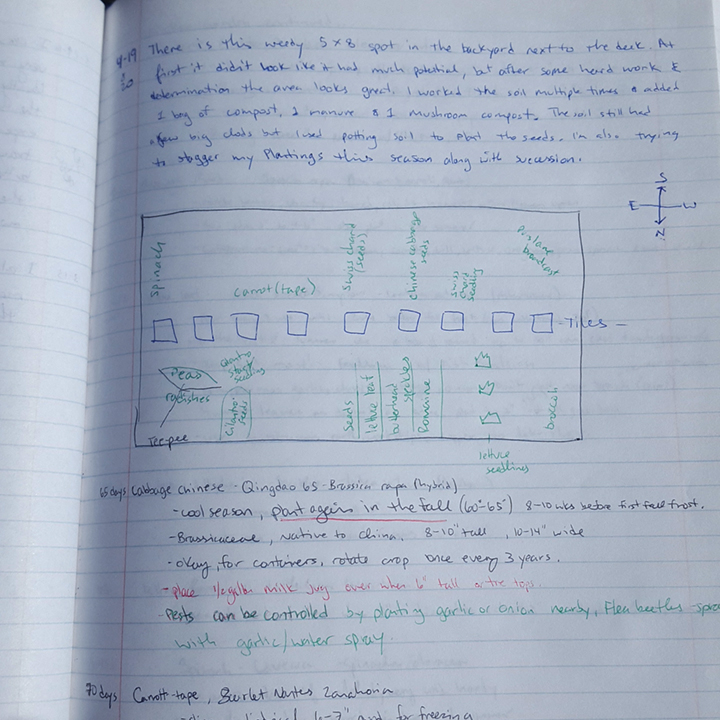 4-19
20
There is this weedy 5x8 spot in the backyard next to the deck. At
first it didn't look like it had much potential, but after some heard work &
determination the area looks great. I worked the soil multiple times & added
1 bag of compost, 1 manure & 1 mushroom compost. The soil still had
a few big clods but I used potting soil to plant the seeds. I'm also trying
to stagger my plantings this season along with succession.
S
E W
N
spinach
carrot (tape)
swiss chard
(seeds)
chinese cabbage
seeds
swiss
chard
seedling
purslane
broadcast
Tiles
Peas
radishes
Tee-pee
seedling
cilantro
seeds
Seeds
lettuce leaf
buttercrunch
speckles
Romaine
lettuce
seedlines
broccoli
65 days Cabbage Chinese - Qingdao 65 - Brassica rapa (hybrid)
- cool season, plant again in the fall (60°-65°) 8-10 wks before first fall frost.
- Brassicaceae, native to China, 8-10" tall, 10-14" wide
- okay for containers, rotate crop once every 3 years.
- place 1/2 gallon milk jug over when 6" tall or tie tops.
- Pests can be controlled by planting garlic or onion nearby, Flea beetles
with garlic/water spray.
70 days Carrot-tape, Scarlet Nantes Zanahoria
6-7" and for freezing